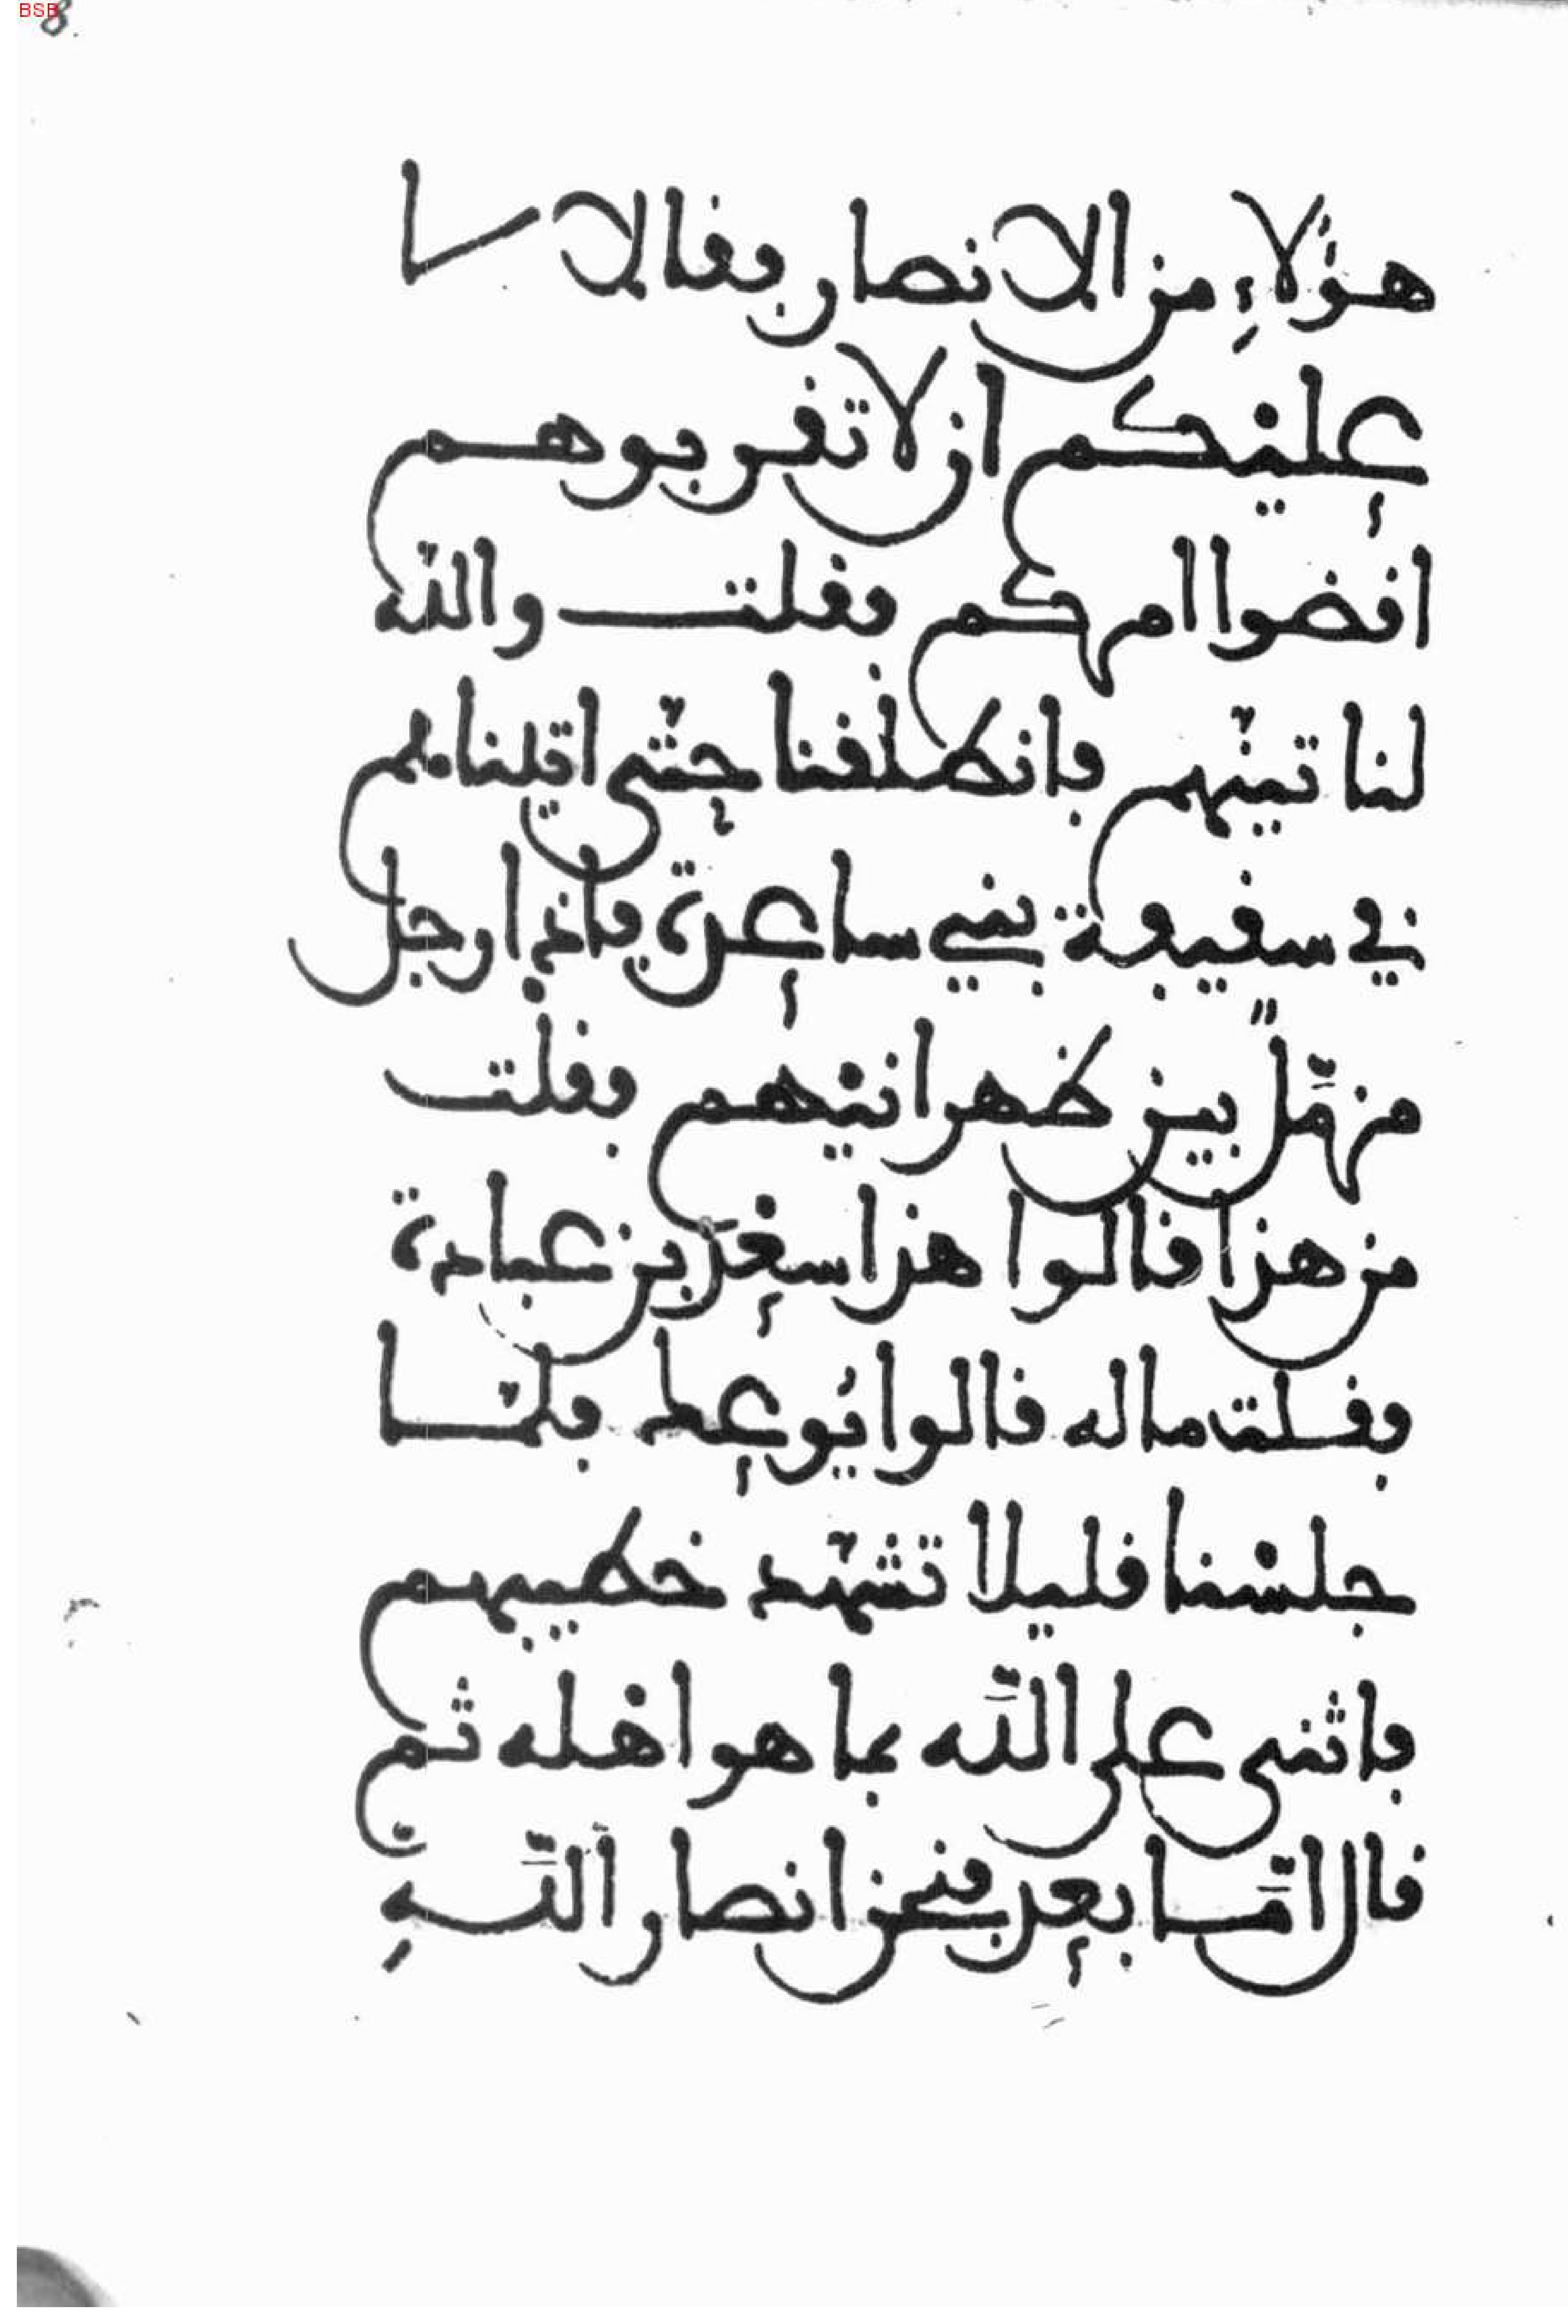 BSB
8.
هؤلاء من الانصار فقالا لا
عليكم ان لا تقربوهم
اقضوا امركم فقلت والله
لناتينهم فانطلقنا حتى اتيناهم
في سقيفة بني ساعدة فاذا رجل
مزمل بين ظهرانيهم فقلت
من هذا قالوا هذا سعد بن عبادة
فقلت ماله قالوا يوعك فلما
جلسنا قليلا تشهد خطيبهم
فاثنى على الله بما هو اهله ثم
قال اما بعد فنحن انصار الله